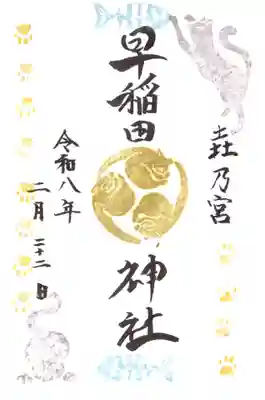 乃宮
早稲田神社
令和八年
二月二十二日